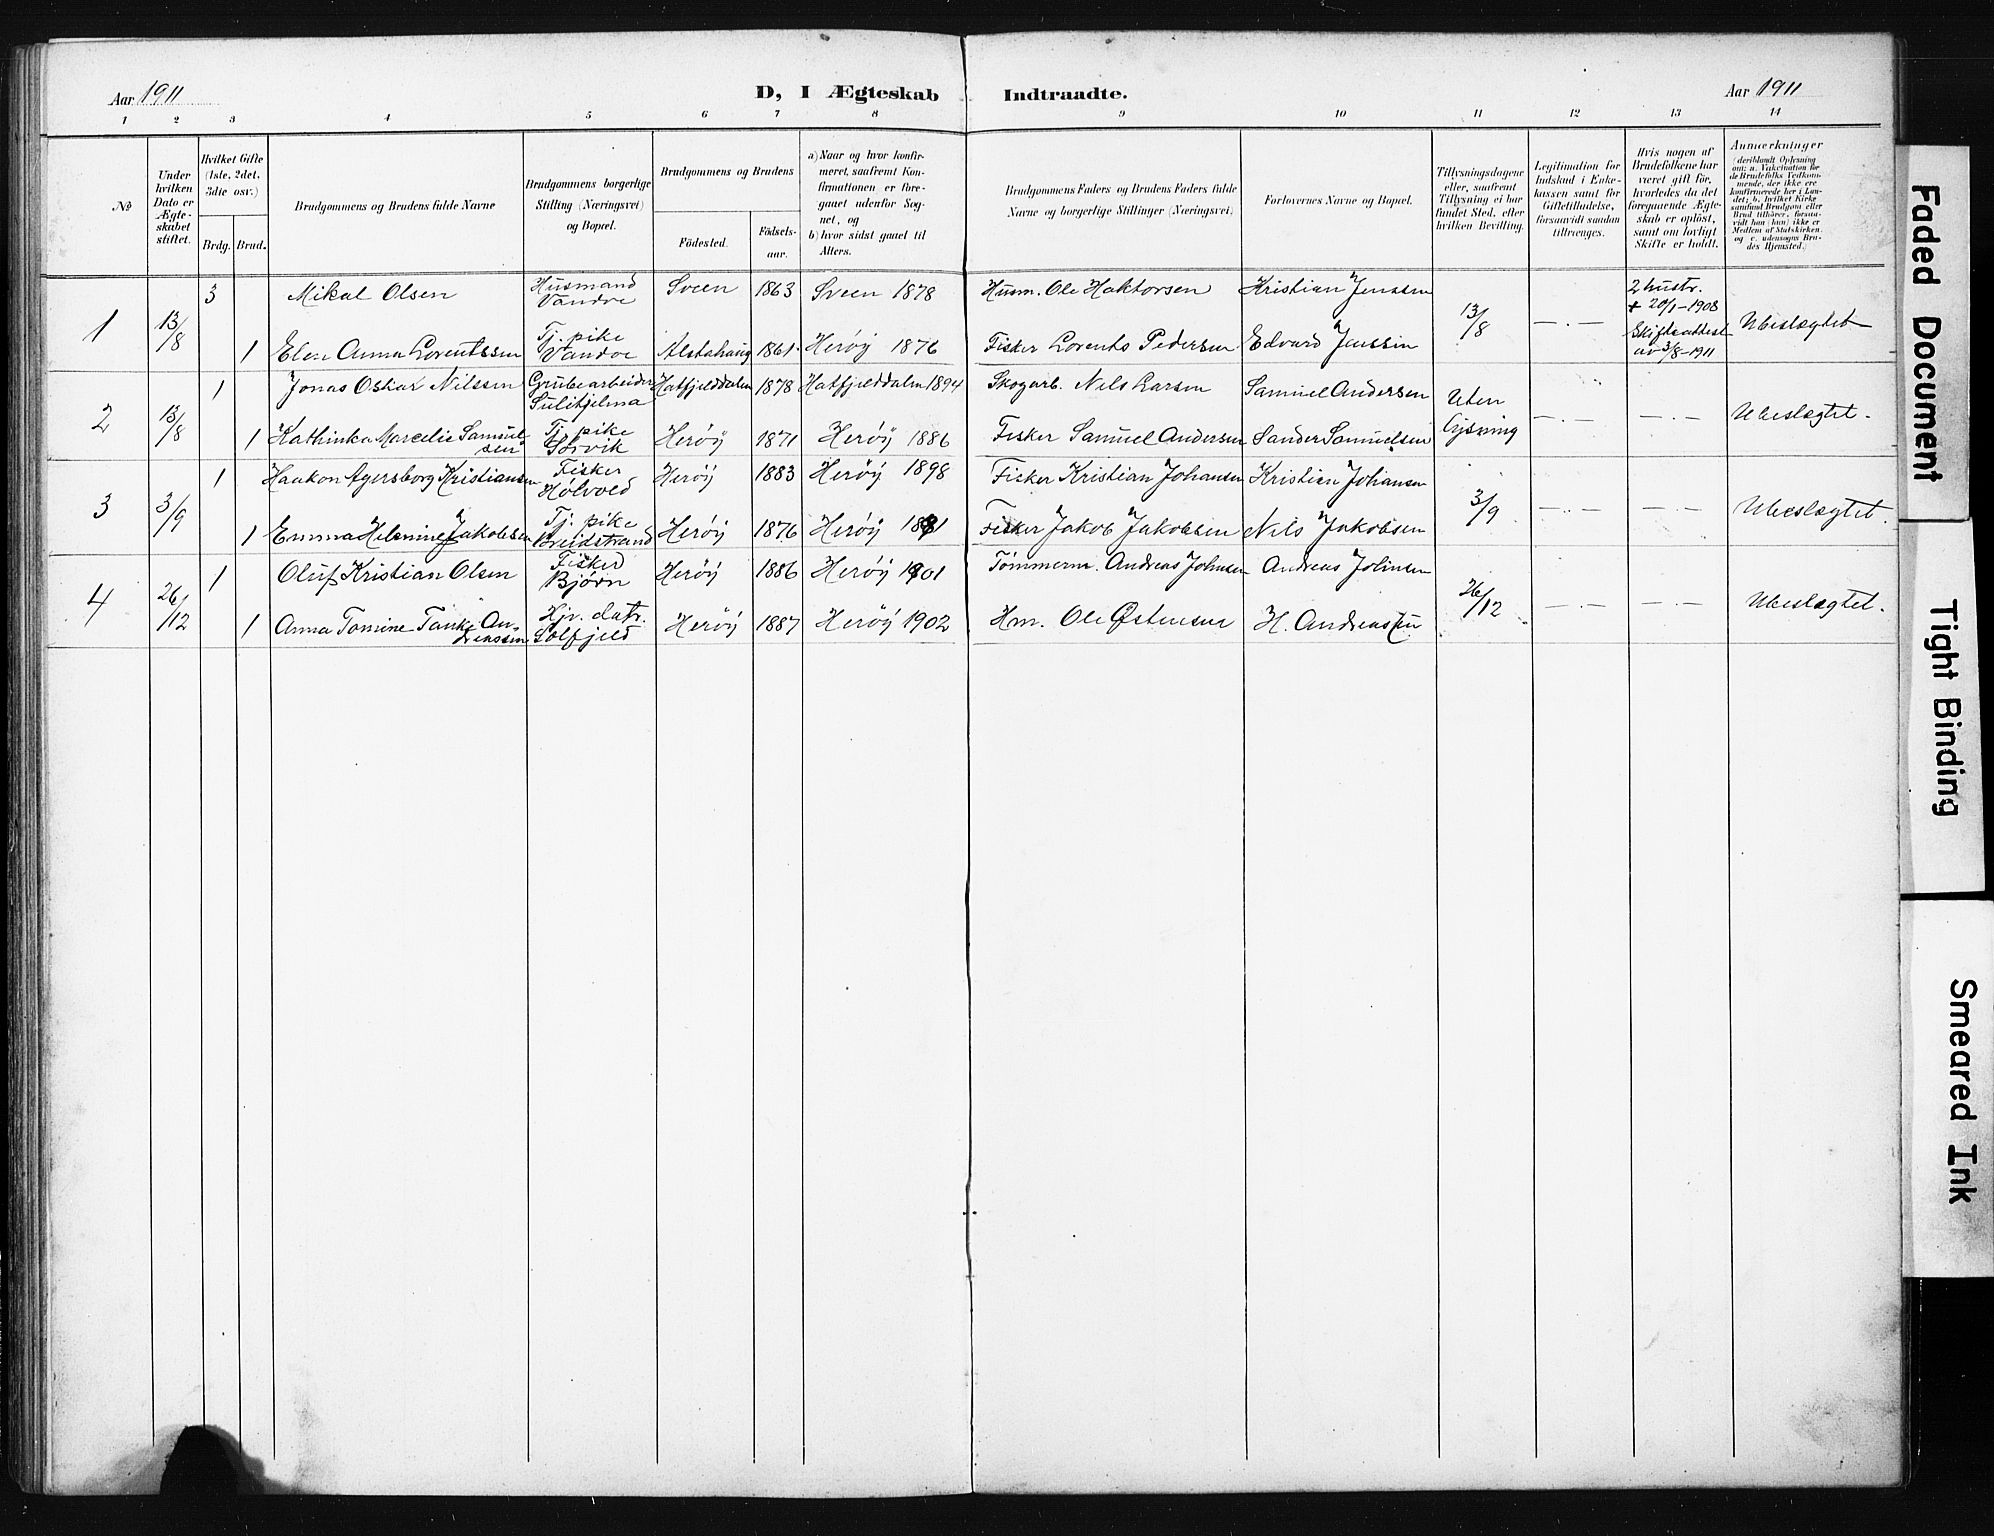 Aar 1911
D, I Ægteskab Indtraadte.
Aar 1911
1 2 3 4 5 6 7 8 9 10 11 12 13 14
№
Under hvilken Dato er Ægte-skabet stiftet.
Hvilket Gifte (1ste, 2det, 3die osv.)
Brdg. Brud.
Brudgommens og Brudens fulde Navne
Brudgommens borgerlige Stilling (Næringsvei) og Bopæl.
Brudgommens og Brudens
Födested. Födsels-aar.
a) Naar og hvor konfir-meret, saafremt Kon-firmationen er fore-gaaet udenfor Sog-net, og
b) hvor sidst gaaet til Alters.
Brudgommens Faders og Brudens Faders fulde Navne og borgerlige Stillinger (Næringsvei)
Forlovernes Navne og Bopæl.
Tillysningsdagene eller, saafremt Tillysning ei har fundet Sted, efter hvilken Bevilling.
Legitimation for Indskud i Enke-kassen samt for Giftetilladelse, forsaavidt saadan tiltrænges.
Hvis nogen af Brudefolkene har været gift før, hvorledes da det foregaaende Ægte-skab er oplöst, samt om lovligt Skifte er holdt.
Anmærkninger
(deriblandt Oplysning om: a. Vakcination for de Brudefolks Vedkom-mende, der ikke ere konfirmerede her i Lan-det; b. hvilket Kirke samfund Brudgom eller Brud tilhörer, forsaa-vidt han (hun) ikke er Medlem af Statskirken. og c. udensogns Bru-des Hjemsted.)
1 13/8 3 Mikal Olsen Husmand Vandve Sveen 1863 Sveen 1878 Husm. Ole Haktorsen Kristian Jenssen 13/8 — . — 2 hustr. + 20/1 - 1908 Skifteattest av 3/8 - 1911 Ubeslægtet
1 Elen Anna Lorentssen Tj. pike Vandve Alstahaug 1861 Herøy 1876 Fisker Lorents Pedersen Edvard Jenssen
2 13/8 1 Jonas Oskar Nilssen Grubearbeider Sulitjelma Hatfjelddalen 1878 Hatfjelddalen 1894 Skogarb. Nils Larsen Samuel Andersen Uten lysning — . — — . — Ubeslægtet.
1 Kathinka Marcelie Samuelsen Tj. pike Sørvik Herøy 1871 Herøy 1886 Fisker Samuel Andersen Sander Samuelsen
3 3/9 1 Haakon Agersborg Kristiansen Fisker Hølvold Herøy 1883 Herøy 1898 Fisker Kristian Johansen Kristian Johansen 3/9 — . — — . — Ubeslægtet.
1 Emma Helmine Jakobsen Tj. pike Breidstrand Herøy 1876 Herøy 1891 Fisker Jakob Jakobsen Nils Jakobsen
4 26/12 1 Oluf Kristian Olsen Fisker Bjørn Herøy 1886 Herøy 1901 Tømmerm. Andreas Johnsen Andreas Johnsen 26/12 — . — — . — Ubeslægtet.
1 Anna Tomine Tanke Andreassen Hjv. datr. Solfjeld Herøy 1887 Herøy 1902 Hm. Ole Østensen H. Andreassen
Faded Document
Tight Binding
Smeared Ink